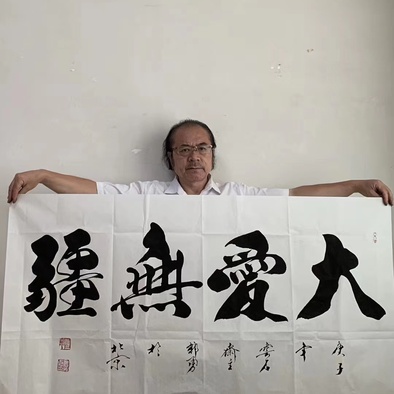 大愛無疆
庚子年石齋主於北京